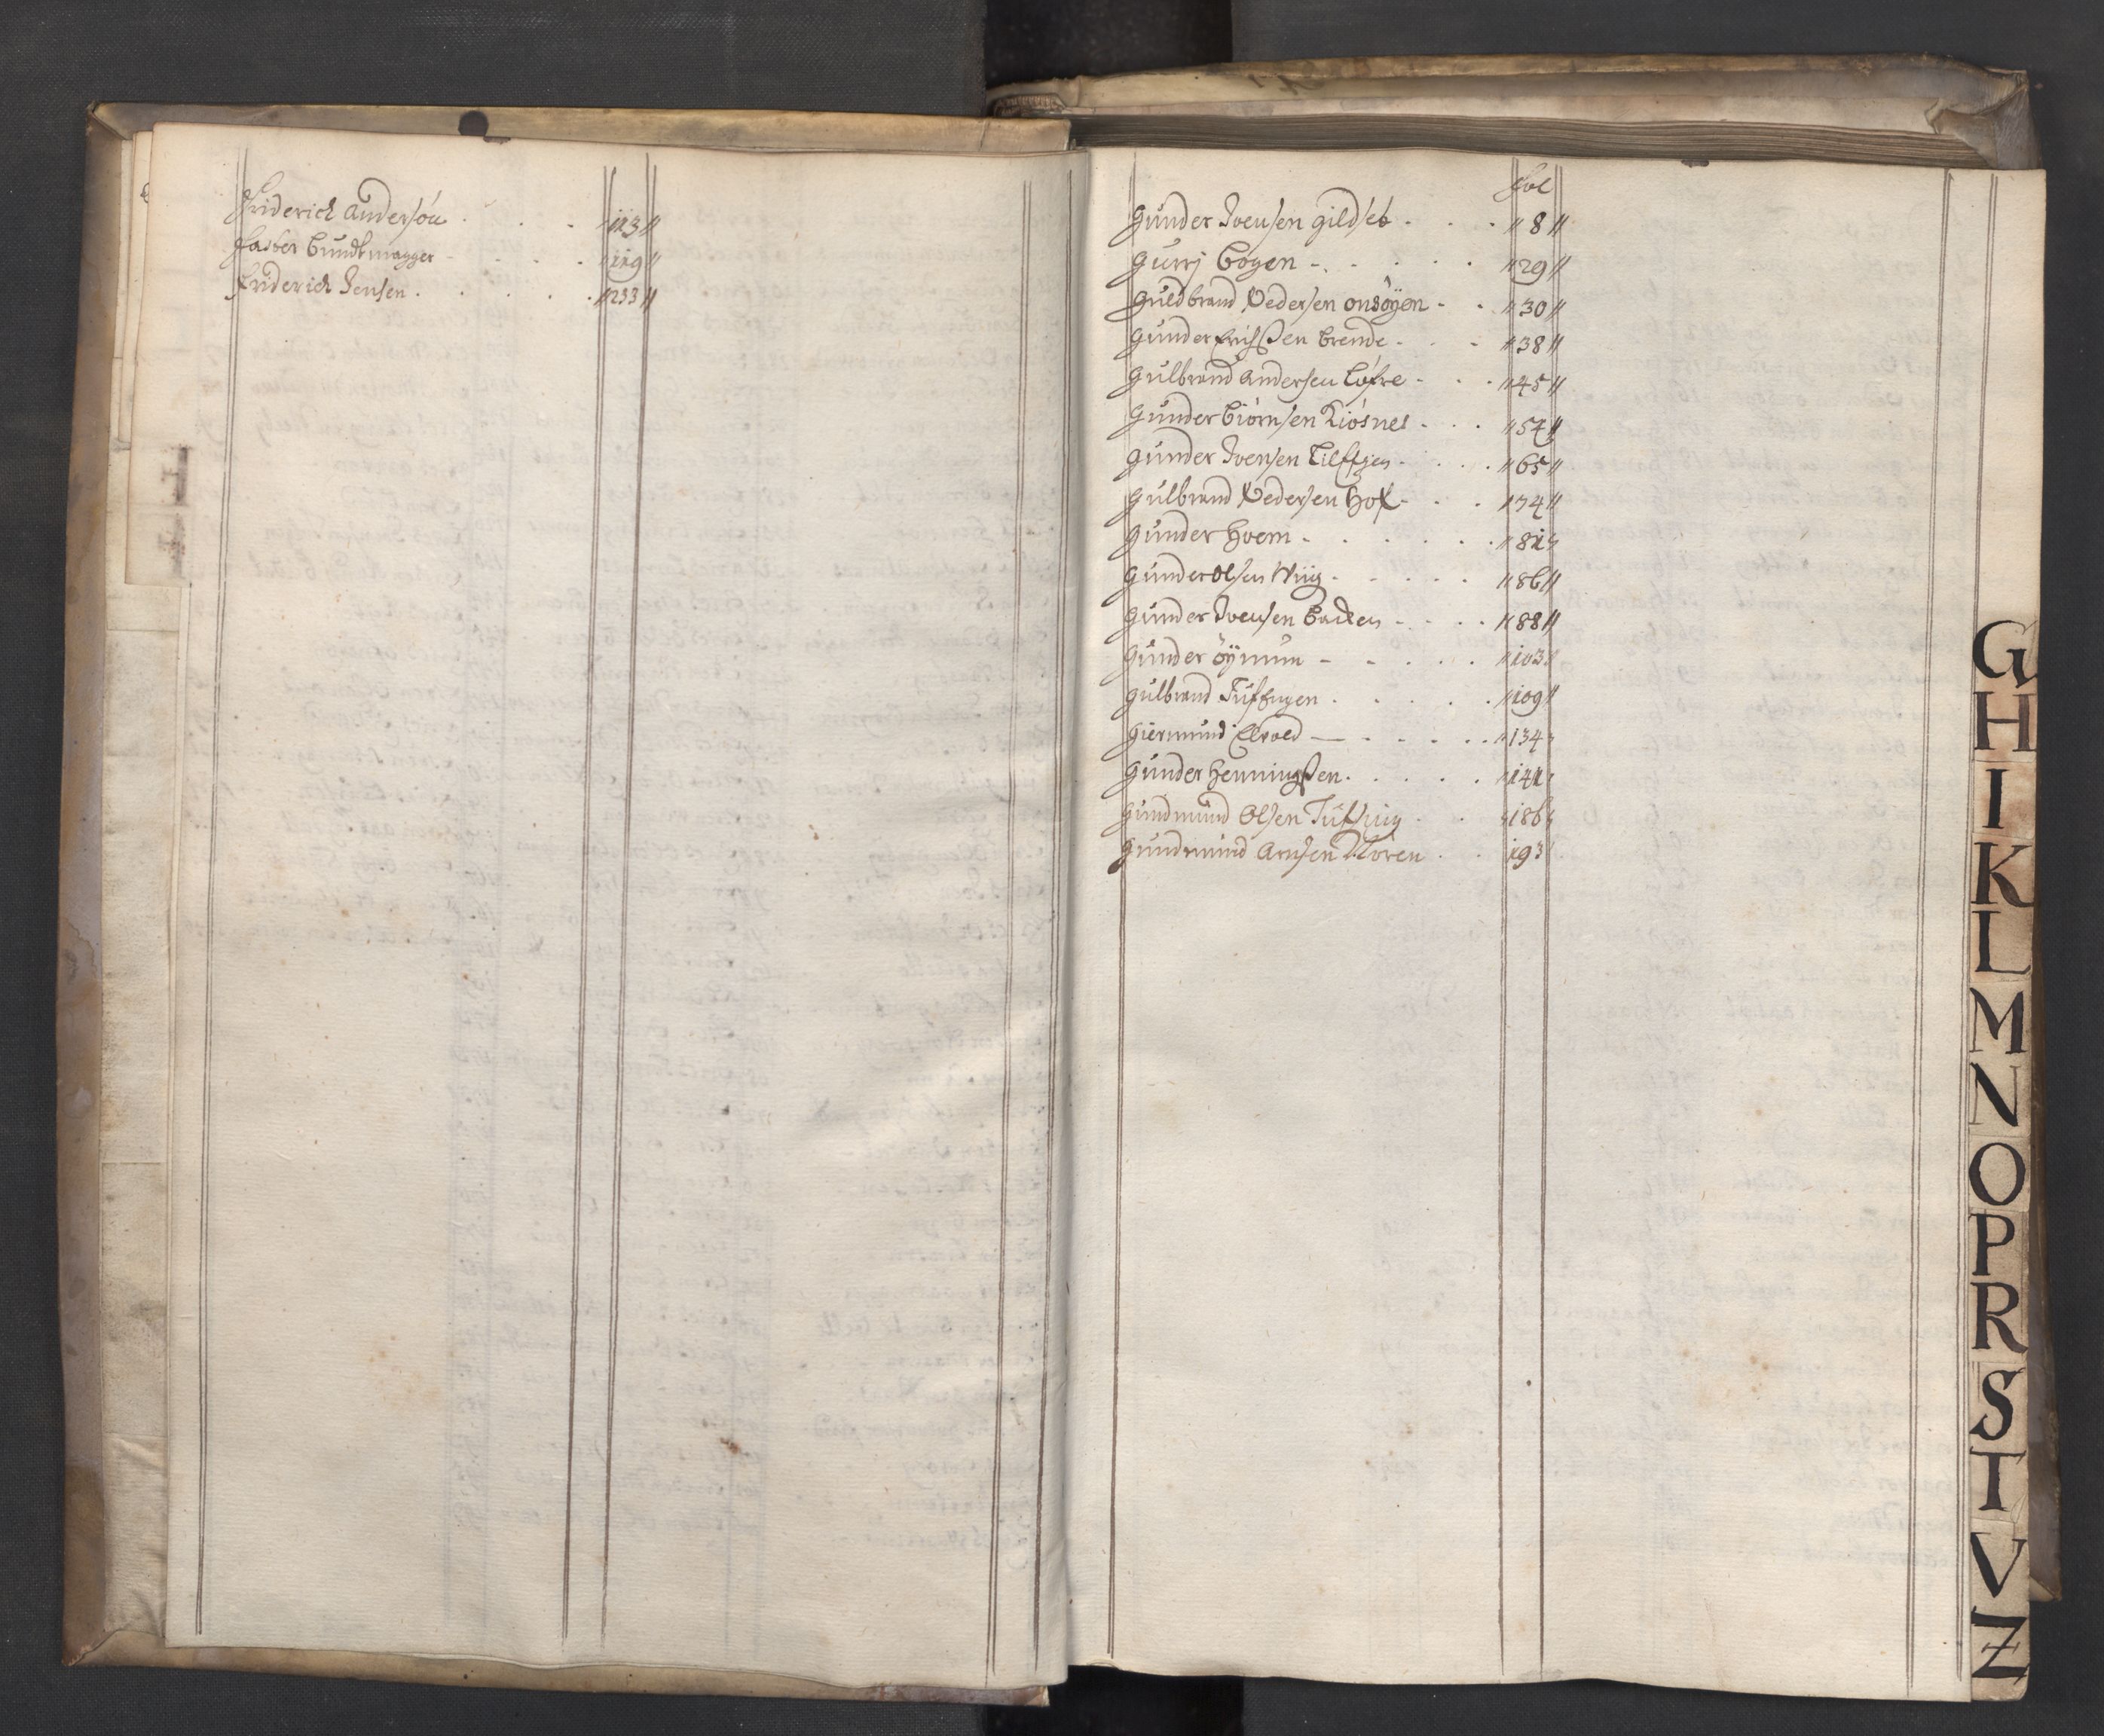 Friderich Andersøn . . . . 113 //
Fasber Bundtmagger - . . . . 119 //
Friderich Jensen . . . . . // 233 //
Fol
Gunder Ivensen Gildset . . . // 8 //
Guri Bogen - . . . . // 29 //
Guldbrand Pedersen onsøyen - . // 30 //
Gunder Erichsen Brende . . - // 38 //
Gulbrand Andersen Løfre - . . // 45 //
Gunder Biørnsen Kiösnes . . . // 54 //
Gunder Ivensen . . . // 65 //
Gulbrand Pedersen Hof - . . 74 //
Gunder Hoem - . . . . . // 81 //
Gunder Olsen Wiig . . . . // 86 //
Gunder Ivensen Backen - . . . // 88 //
Gunder Øymun - - . . . // 103 //
Gulbrand Tufsingen . . . . . // 109 //
Giermund Elvold — . . . . . // 134
Gunder Henningsen . . . . . // 141
Gundmund Olsen Tufsing . . 186
Gundmund Arnsen Moren . . 193
G
H
I
K
L
M
N
O
P
R
S
T
V
Z